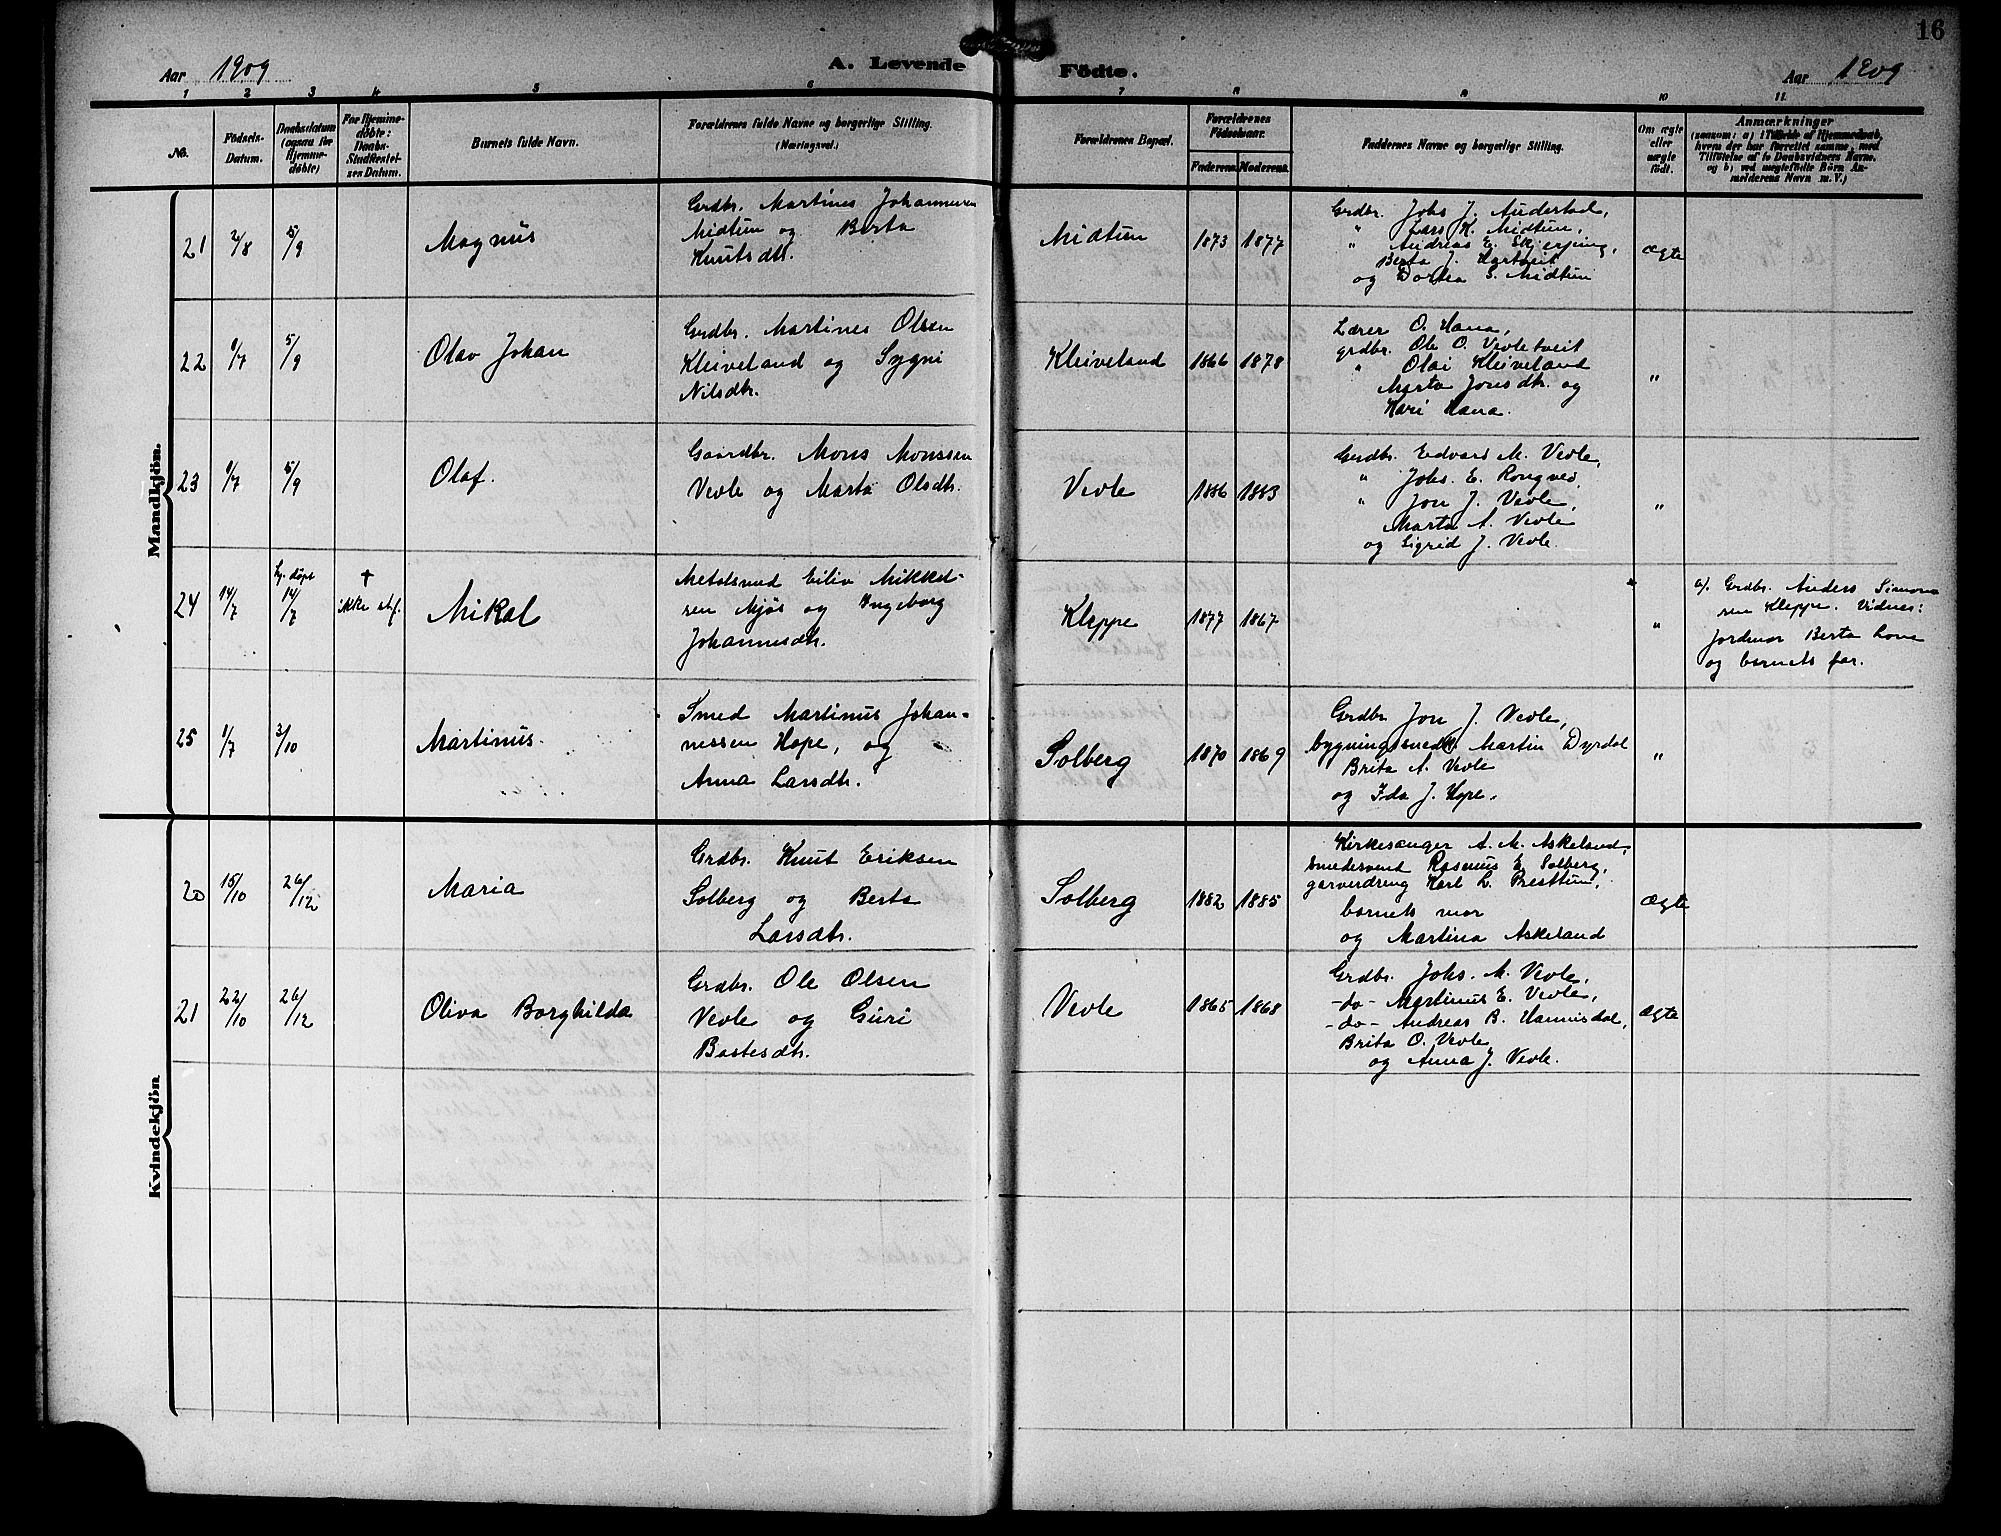 16
Aar 1909
A. Levende
Födte.
Aar 1909
1 2 3 4 5 6 7 8 9 10 11.
No.
Födsels-
Datum.
Daabsdatum
(ogsaa for
Hjemme-
døbte)
For Hjemme-
døbte:
Daabs-
Stadfæstel-
ses Datum.
Barnets fulde Navn.
Forældrenes fulde Navne og borgerlige Stilling.
(Næringsvei.)
Forældrenes Bopæl.
Forældrenes
Födselsaar.
Faderens. Moderens.
Faddernes Navne og borgerlige Stilling.
Om ægte
eller
uægte
født.
Anmærkninger
(saasom: a) i Tilfælde af Hjemmedaab,
hvem der har forrettet samme, med
Tilføielse af to Daabsvidners Navne,
og b) ved uægtefødte Börn An-
melderens Navn m. V.)
Mandkjön.
21
2/8
5/9
Magnus
Grdbr. Martines Johannesen
Midtun og Berta
Knutsdtr.
Midtun
1873 1877
Grdbr. Johs J. Anderstad,
" Lars K. Midtun,
" Andreas E. Skjerping,
Berta J. Hartveit
og Dortea S. Midtun
ægte
22
9/7
5/9
Olav Johan
Grdbr. Martines Olsen
Kleiveland og Sygni
Nilsdtr.
Kleiveland
1866 1878
Lærer O. Hana,
grdbr. Ole O. Vevletveit
" Olai Kleiveland
Marta Jonsdtr. og
Kari Hana.
"
23
9/7
5/9
Olaf.
Gaardbr. Mons Monssen
Vevle og Marta Olsdtr.
Vevle
1886 1883
Grdbr. Edvard M. Vevle,
" Johs. E. Rongved,
" Jon J. Vevle,
Marta A. Vevle
og Sigrid J. Vevle.
"
24
14/7
hj. døpt
14/7
†
ikke stf.
Mikal
Metalsmed Eiliv Mikkel-
sen Mjøs og Ingeborg
Johannesdtr.
Kleppe
1877 1867
"
a). Grdbr. Anders Simon-
sen Kleppe. Vidner:
jordmor Berta Lone
og barnets far.
25
1/7
3/10
Martinus.
Smed Martinus Johan-
nessen Hope, og
Anna Larsdtr.
Solberg
1870 1869
Grdbr. Jon J. Vevle,
bygningssnedk. Martin Dyrdal
Brita A. Vevle
og Ida J. Hope.
"
Kvindekjön
20
15/10
26/12
Maria
Grdbr. Knut Eriksen
Solberg og Berta
Larsdtr.
Solberg
1882 1885
Kirkesanger A. M. Askeland,
smedesvend Rasmus E. Solberg,
garverdreng Karl L. Presttun,
barnets mor
og Martina Askeland
ægte
21
22/10
26/12
Oliva Borghilda
Grdbr. Ole Olsen
Vevle og Guri
Bastesdtr.
Vevle
1865 1868
Grdbr. Johs. M. Vevle,
-do- Martinus E. Vevle,
-do- Andreas B. Hannisdal,
Brita O. Vevle
og Anna J. Vevle.
ægte